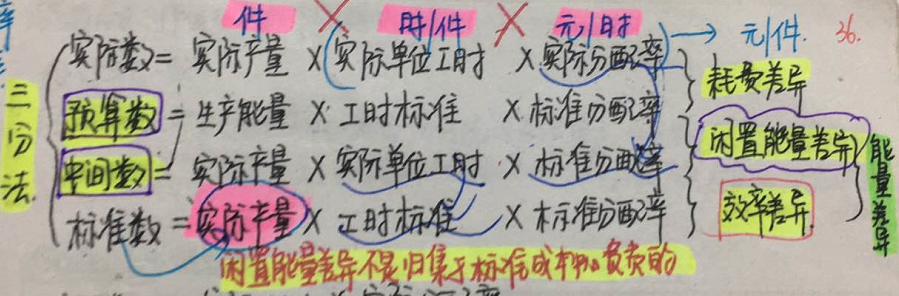 件 × 时/件 × 元/时 → 元/件. 36.
实际数 = 实际产量 × (实际单位工时 × 实际分配率)
耗费差异
预算数 = 生产能量 × 工时标准 × 标准分配率
三分法
闲置能量差异
能量差异
中间数 = 实际产量 × 实际单位工时 × 标准分配率
标准数 = 实际产量 × 工时标准 × 标准分配率
效率差异
闲置能量差异不是归集于标准成本中心负责的